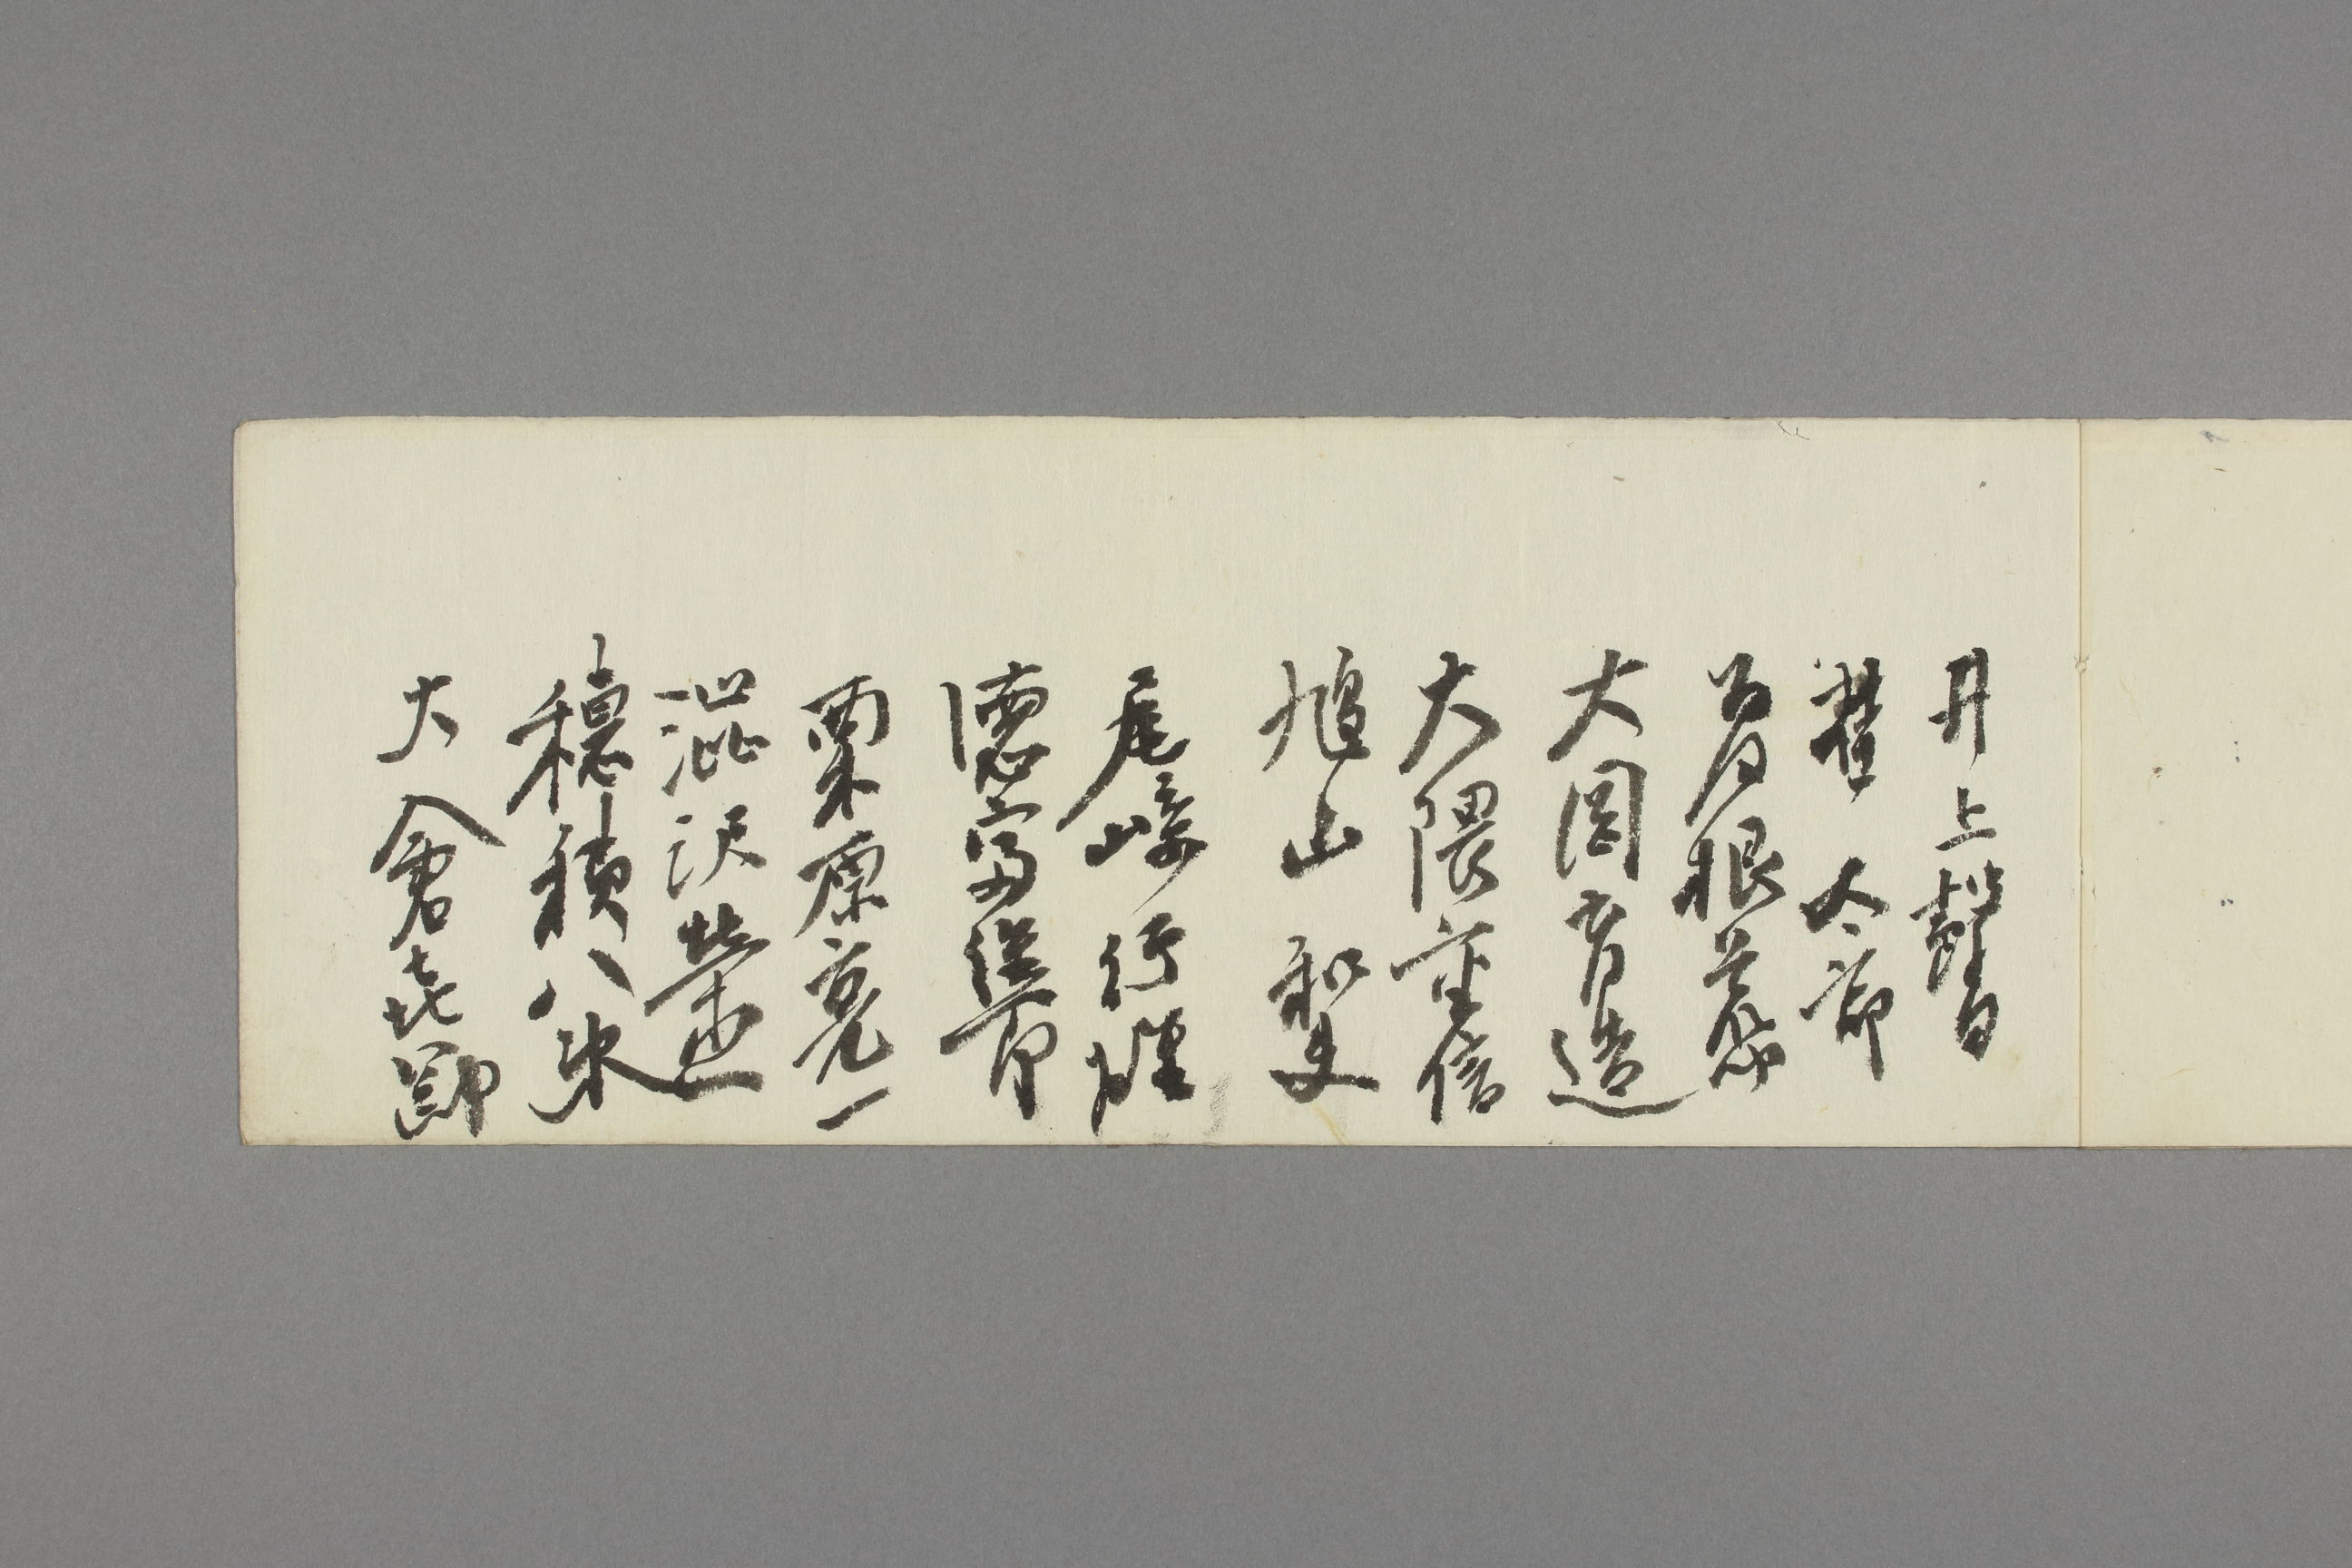 井上馨
太郎
曽根荒助
大岡育造
大隈重信
鳩山和夫
尾崎行雄
徳富猪一郎
栗原亮一
澁沢榮一
穂積八束
大倉喜八郎